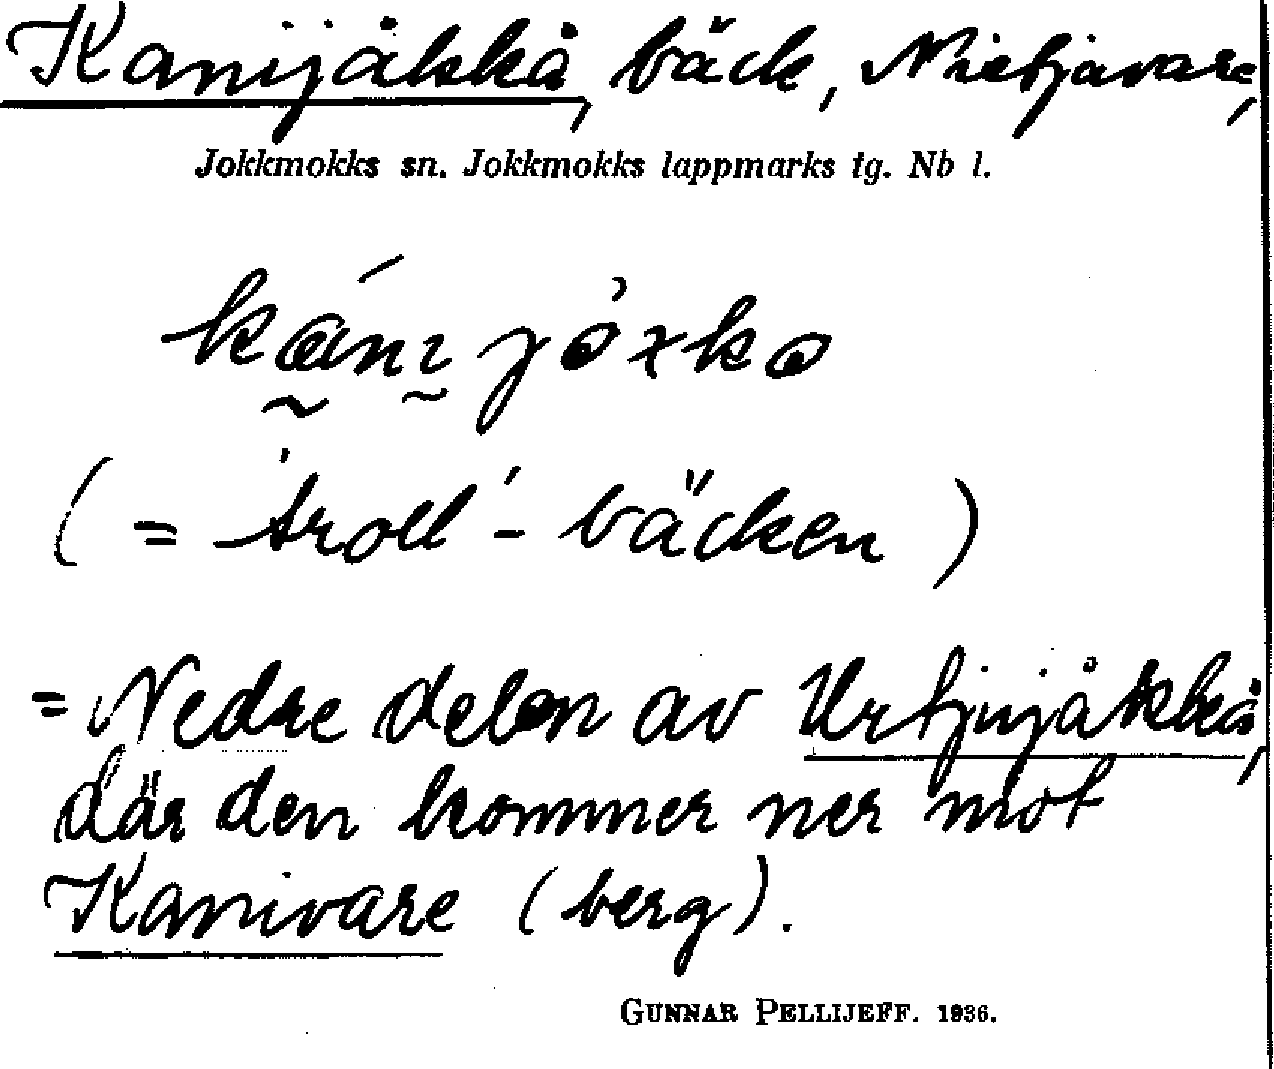 Kanijåkkå, bäck, Nietjavare,
Jokkmokks sn. Jokkmokks lappmarks tg. Nb l.
( = 'troll'- bäcken )
= Nedre delen av Urtjujåkkå,
där den kommer ner mot
Kanivare (berg).
GUNNAR PELLIJEFF. 1936.